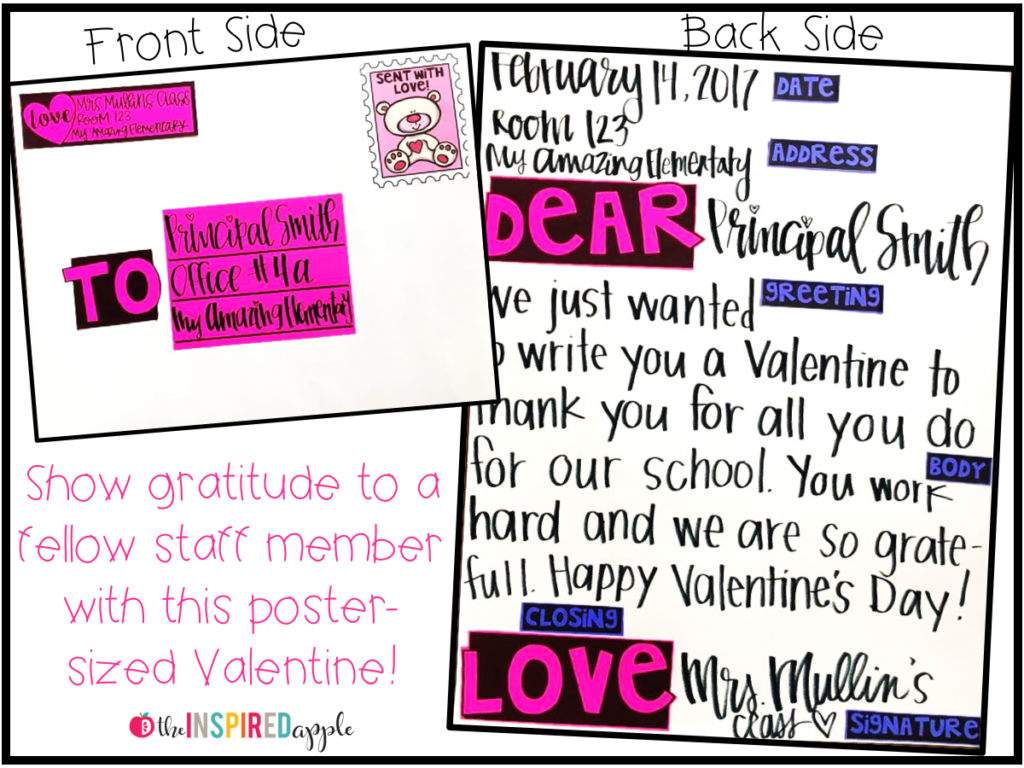 Front Side
LOVE
Mrs. Mullin's Class
Room 123
My Amazing Elementary
SENT WITH
LOVE!
TO
Principal Smith
Office #4a
My Amazing Elementary
Show gratitude to a
fellow staff member
with this poster-
sized Valentine!
the INSPIRED apple
Back Side
February 14, 2017 DATE
Room 123
My Amazing Elementary ADDRESS
DEAR Principal Smith
we just wanted GREETING
to write you a Valentine to
thank you for all you do
for our school. You work BODY
hard and we are so grate-
full. Happy Valentine's Day!
CLOSING
LOVE Mrs. Mullin's
class SIGNATURE